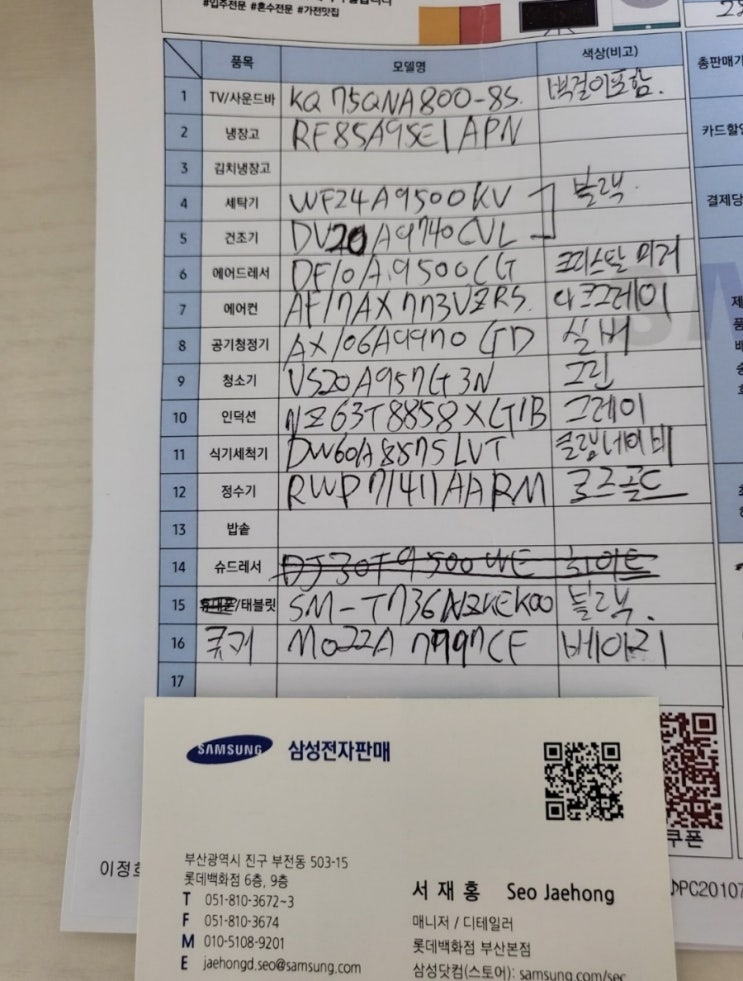 #입주전문 #혼수전문 #가전맛집
품목 모델명 색상(비고)
총판매가
1 TV/사운드바 KQ75QNA800-8S. 벽걸이포함.
2 냉장고 RF85A95E1APN
카드할인
3 김치냉장고
4 세탁기 WF24A9500KV 블랙.
결제당
5 건조기 DV20A9740CVL
6 에어드레서 DF10A9500CG 크리스탈 미러
7 에어컨 AF17AX773VZRS. 다크그레이
8 공기청정기 AX106A9970GD 실버
9 청소기 VS20A957G3N 그린
10 인덕션 NZ63T8858XG1B 그레이
11 식기세척기 DW60A8575LVT
12 정수기 RWP71411AARM 로즈골드
13 밥솥
14 슈드레서 DJ30T9500WE 화이트
15 휴대폰/태블릿 SM-T736NZKEK00 블랙.
16 큐커 MO22A7797CE 베이지
17
SAMSUNG 삼성전자판매
쿠폰
부산광역시 진구 부전동 503-15
롯데백화점 6층, 9층
T 051-810-3672~3
F 051-810-3674
M 010-5108-9201
E jaehongd.seo@samsung.com
서 재 홍 Seo Jaehong
매니저 / 디테일러
롯데백화점 부산본점
삼성닷컴(스토어): samsung.com/sec
PC20107